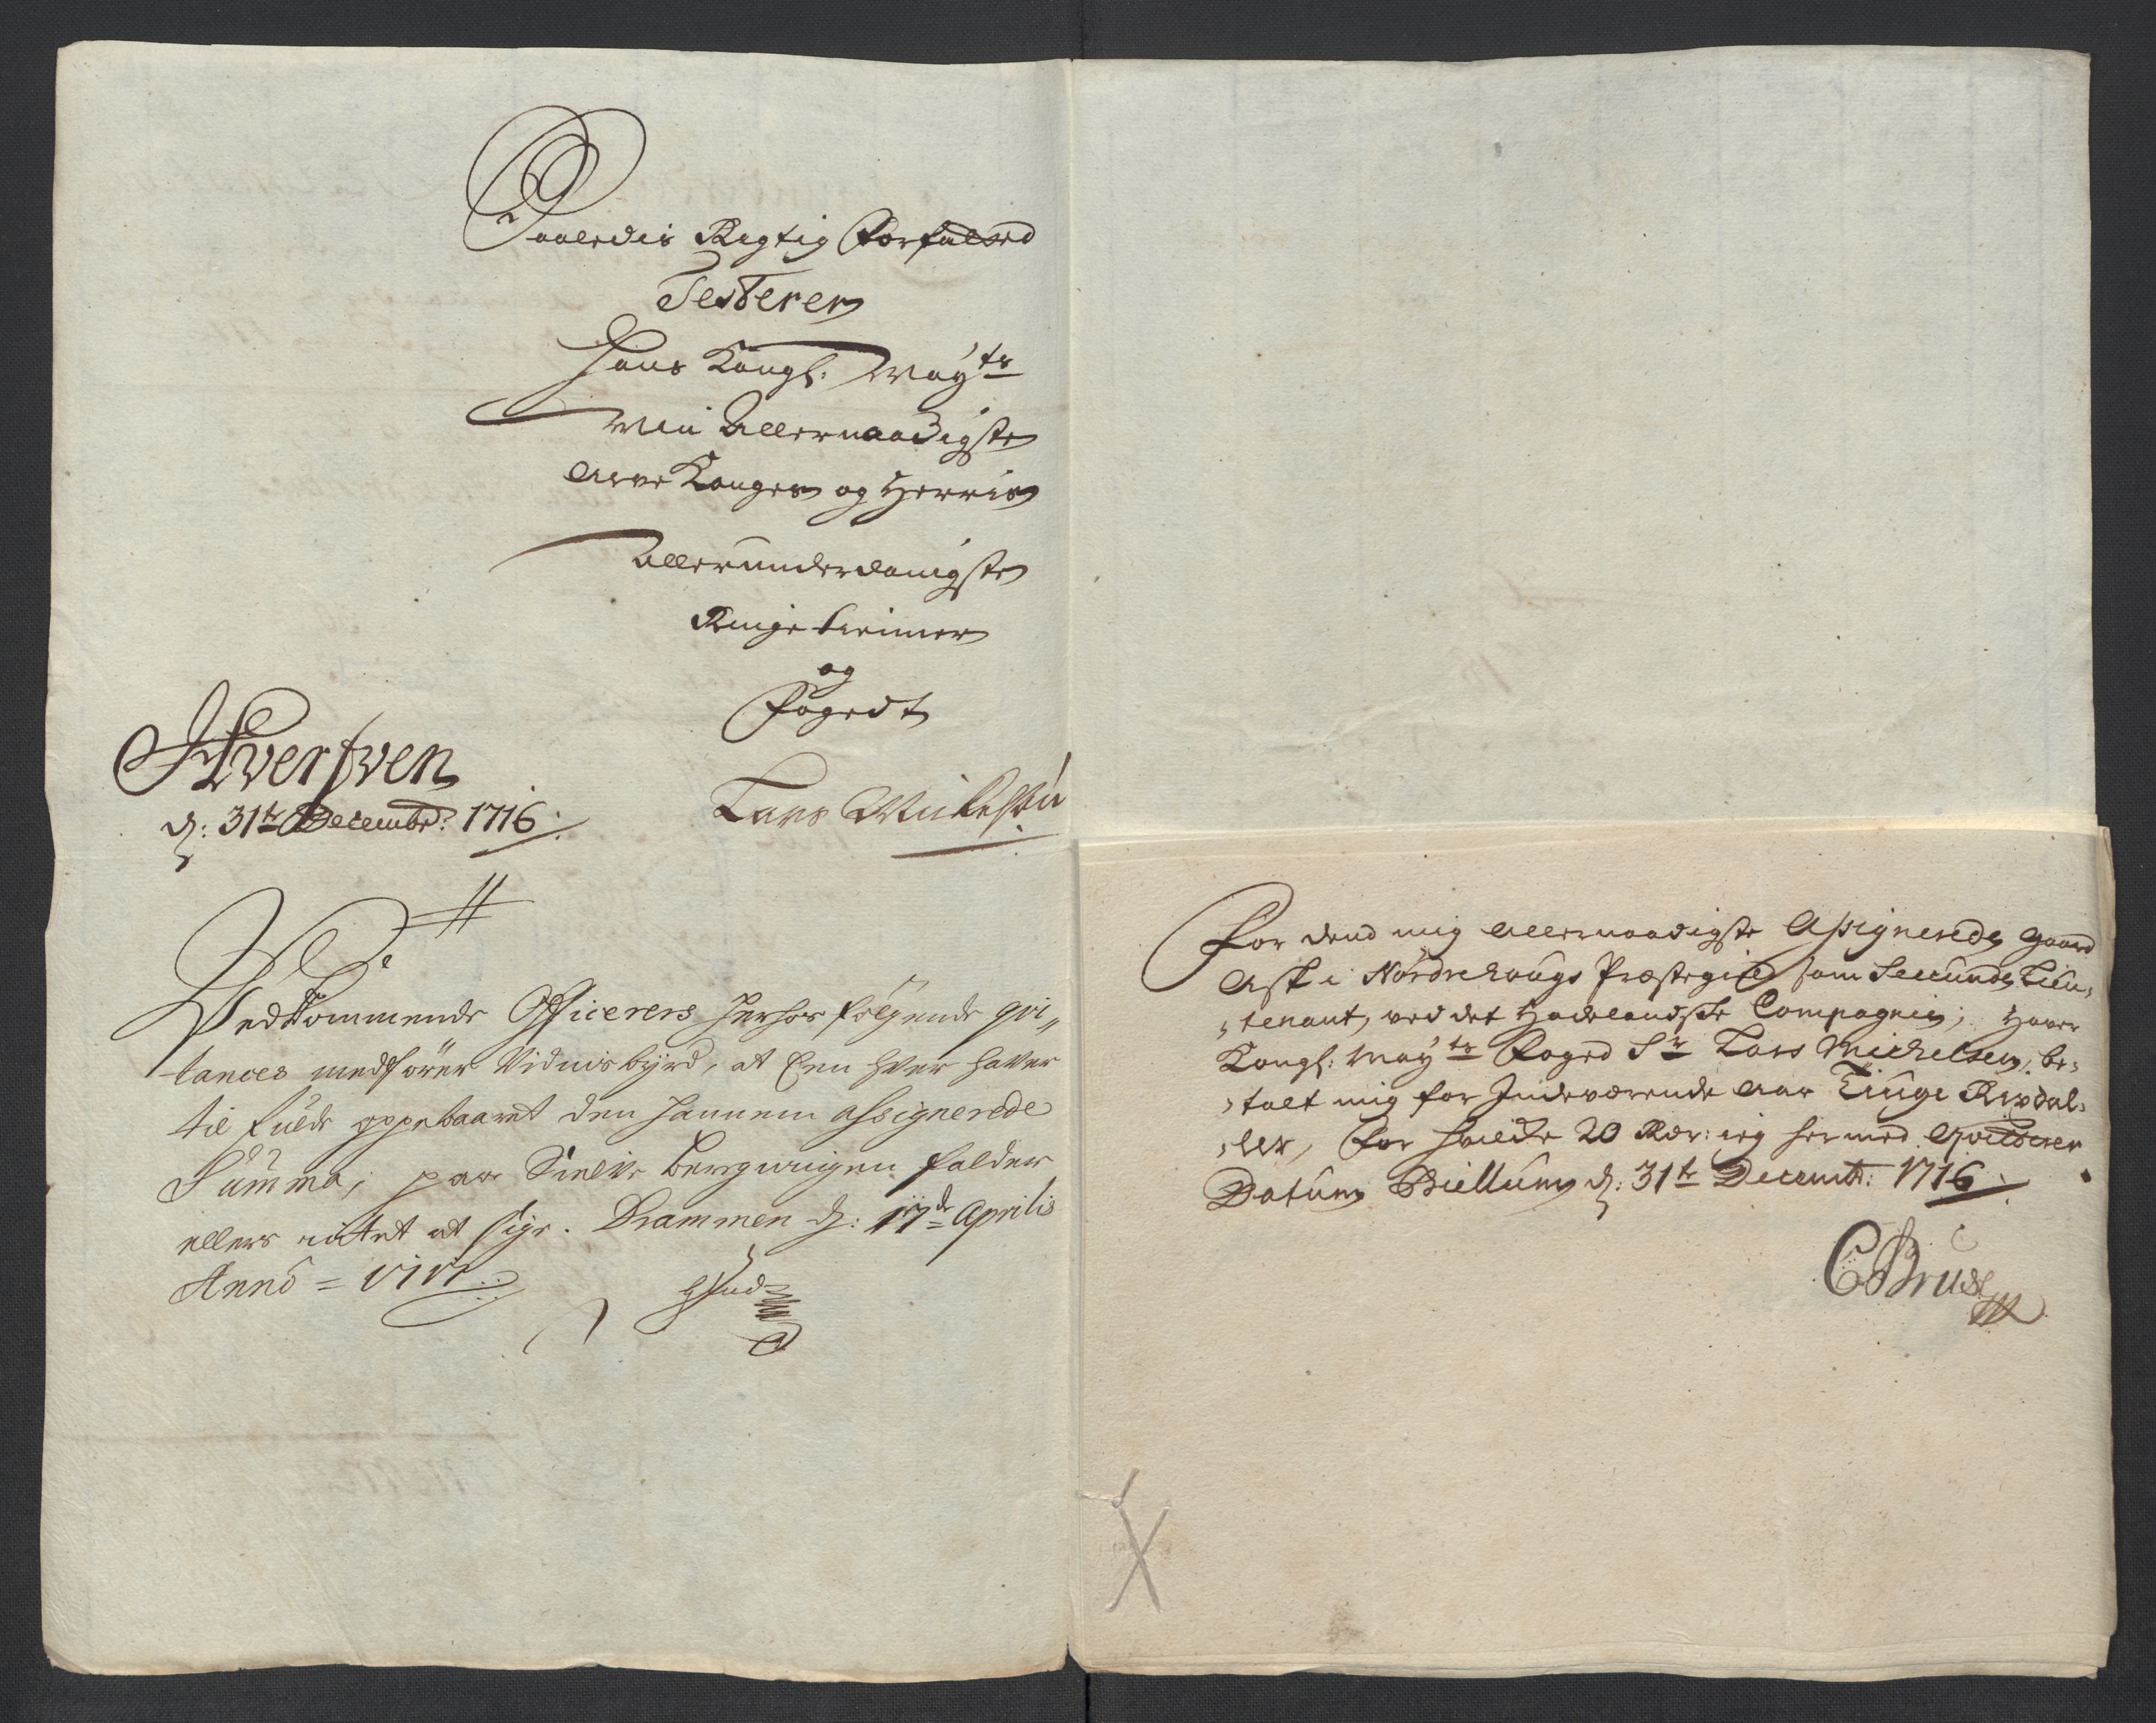 Saaledis Rigtig Forfalded
Testerer
Hans Kongl: Mayts
Min Allernaadigste
Arve Konges og Herris
Allerunderdanigste
Ringe tiener
og
Foged
Hverfven
d: 31te Decembr: 1716
Lars Mickelsen
Vedkommende Officerers herhos følgende qvi„
tances medfører Vidnisbyrd, at Een hver haver
til fulde oppebaaret den hannem assignerede
Summa; paa Sielve beregningen falder
ellers intet at sige. Drammen d: 17de Aprilis
Anno = 1717
For dend mig allernaadigste Assignerede gaard
Ask i Nordrehougs Præstegield som Secunde Lieu„
„tenant, ved det Hadelandske Compagnie; Haver
Kongl: Mayts Foged Sr Lars Michelsen, be„
„talt mig for Indeværende Aar Tiuge Rixdal„
„ler, For hvilcke 20 Rdr: ieg hermed Qvitterer
Datum Biellum d: 31te Decemb: 1716